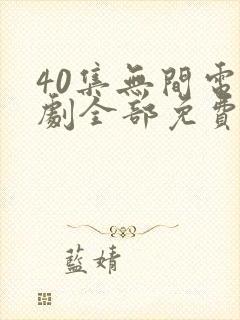 40集無間電
劇全部免費
藍婧